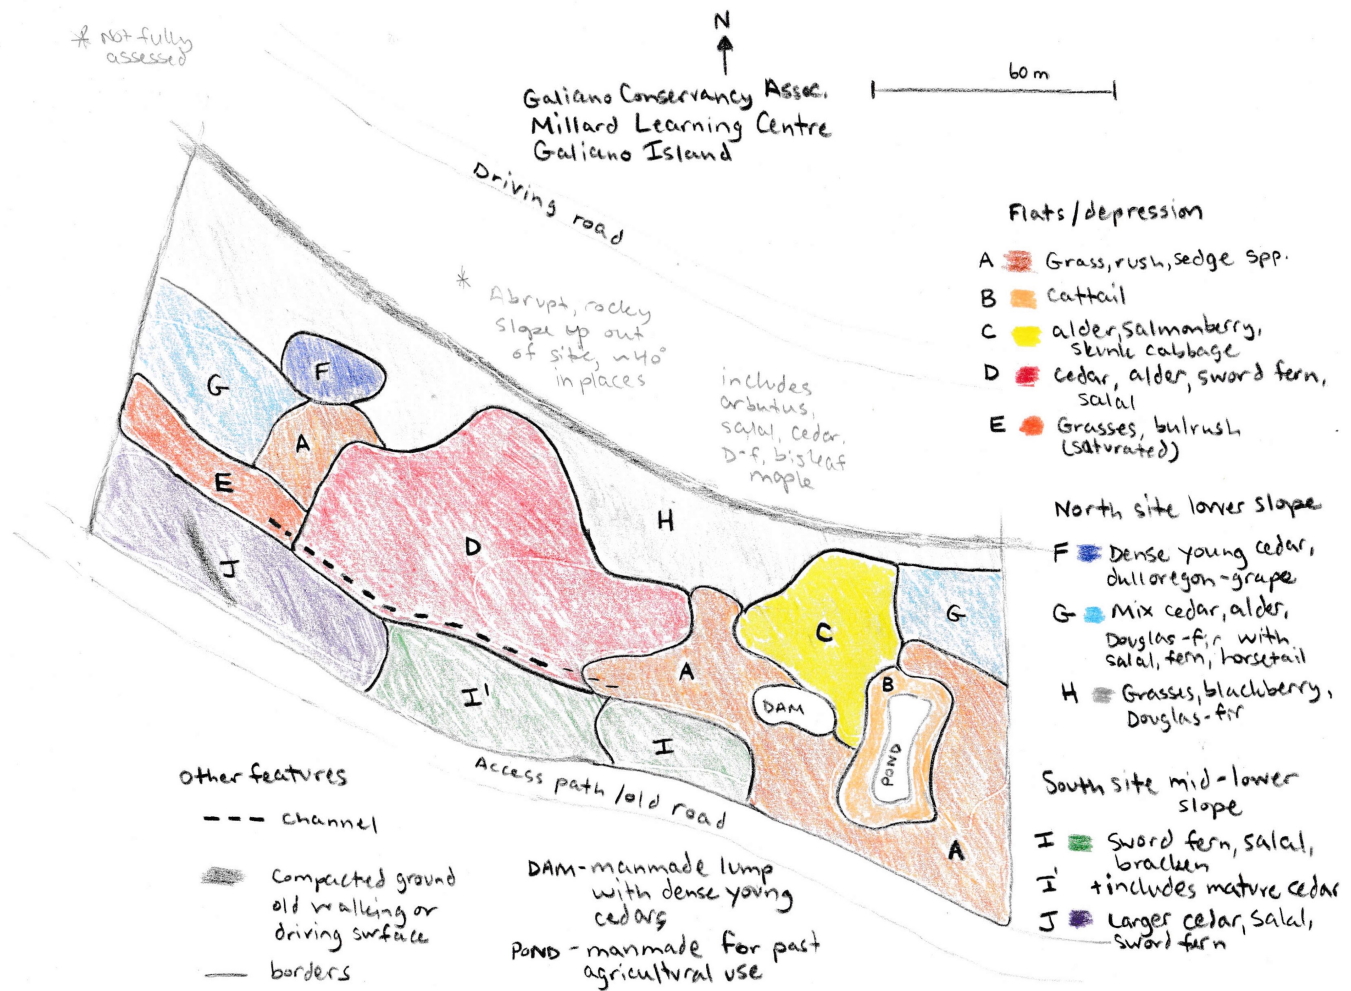 * Not fully
assessed
N
60 m
Galiano Conservancy Assoc.
Millard Learning Centre
Galiano Island
Driving road
* Abrupt, rocky
slope up out
of site, ~40°
in places
includes
arbutus,
salal, cedar,
D-f, bigleaf
maple
Flats/depression
A Grass, rush, sedge spp.
B cattail
C alder, salmonberry,
skunk cabbage
D cedar, alder, sword fern,
salal
E Grasses, bulrush
(saturated)
North site lower slope
F Dense young cedar,
dull oregon-grape
G Mix cedar, alder,
Douglas-fir with
salal, fern, horsetail
H Grasses, blackberry,
Douglas-fir
South site mid-lower
slope
I Sword fern, salal,
bracken
I' + includes mature cedar
J Larger cedar, salal,
sword fern
G
F
A
E
J
D
H
I'
I
A
C
G
B
DAM
POND
A
Access path/old road
Other features
channel
compacted ground
old walking or
driving surface
borders
DAM - manmade lump
with dense young
cedars
POND - manmade for past
agricultural use